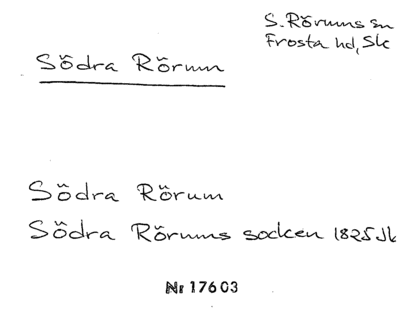 S. Rörums sn
Frosta hd, Sk
Södra Rörum
Södra Rörum
Södra Rörums socken 1825 Jk
Nr 17603